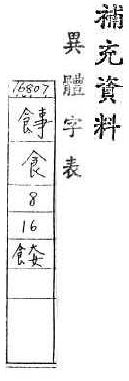 補充資料
異體字表
16807
食
8
16